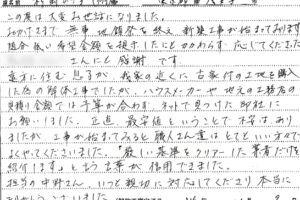 この度は大変お世話になりました。
おかげさまで無事地鎮祭を終え新築工事が始まっております
随分低い希望金額を提示したにもかかわらず、応じてくださった
さんにと感謝です
東京に住む息子が我家の近くに古家付の土地を購入
した為の解体工事でしたが、ハウスメーカーや地元の工務店の
見積り金額では予算が合わず、ネットで見つけた御社に
お願いしました。正直、最安値ということで不安はあり
ましたが工事が始まってみると職人さん達はとてもいい方々で
よくやってくださいました。「厳しい基準をクリアーした業者だけを
紹介します」と言う言葉が信用できました。
担当の中野さん いつも親切に対応してくださり本当に
ありがとうございました